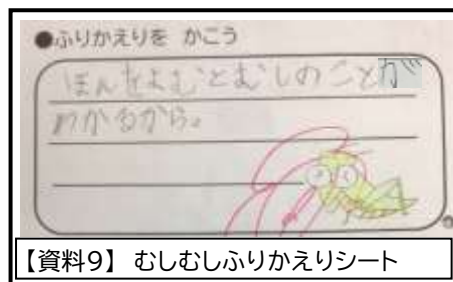 ●ふりかえりを かこう
ほんをよむとむしのことが
わかるから。
【資料9】 むしむしふりかえりシート